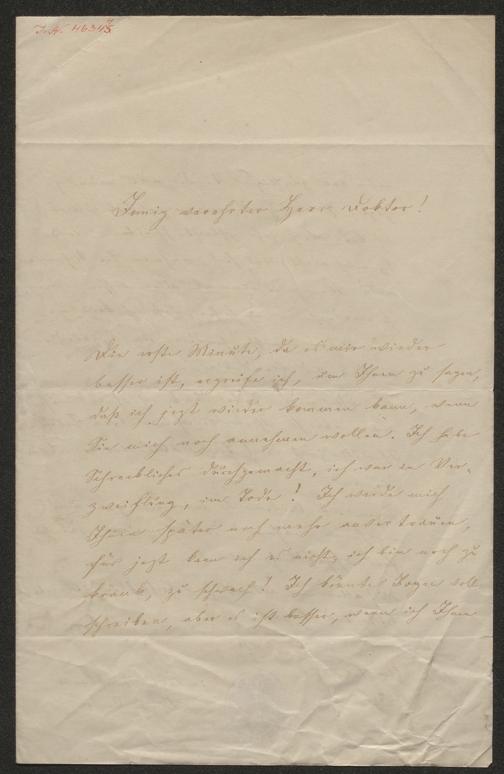 I.N. 46345
Innig verehrter Herr Doktor!
Die erste Minute, da es mir wieder
besser ist, ergreife ich, um Ihnen zu sagen,
daß ich jezt wieder kommen kann, wenn
Sie mich noch annehmen wollen. Ich habe
Schreckliches durchgemacht, ich war in Ver-
zweiflung, im Tode! Ich werde mich
Ihnen später noch mehr anvertrauen,
für jezt kann ich es nicht, ich bin noch zu
krank, zu schwach! Ich könnte Bogen voll
schreiben, aber es ist besser, wenn ich Ihnen